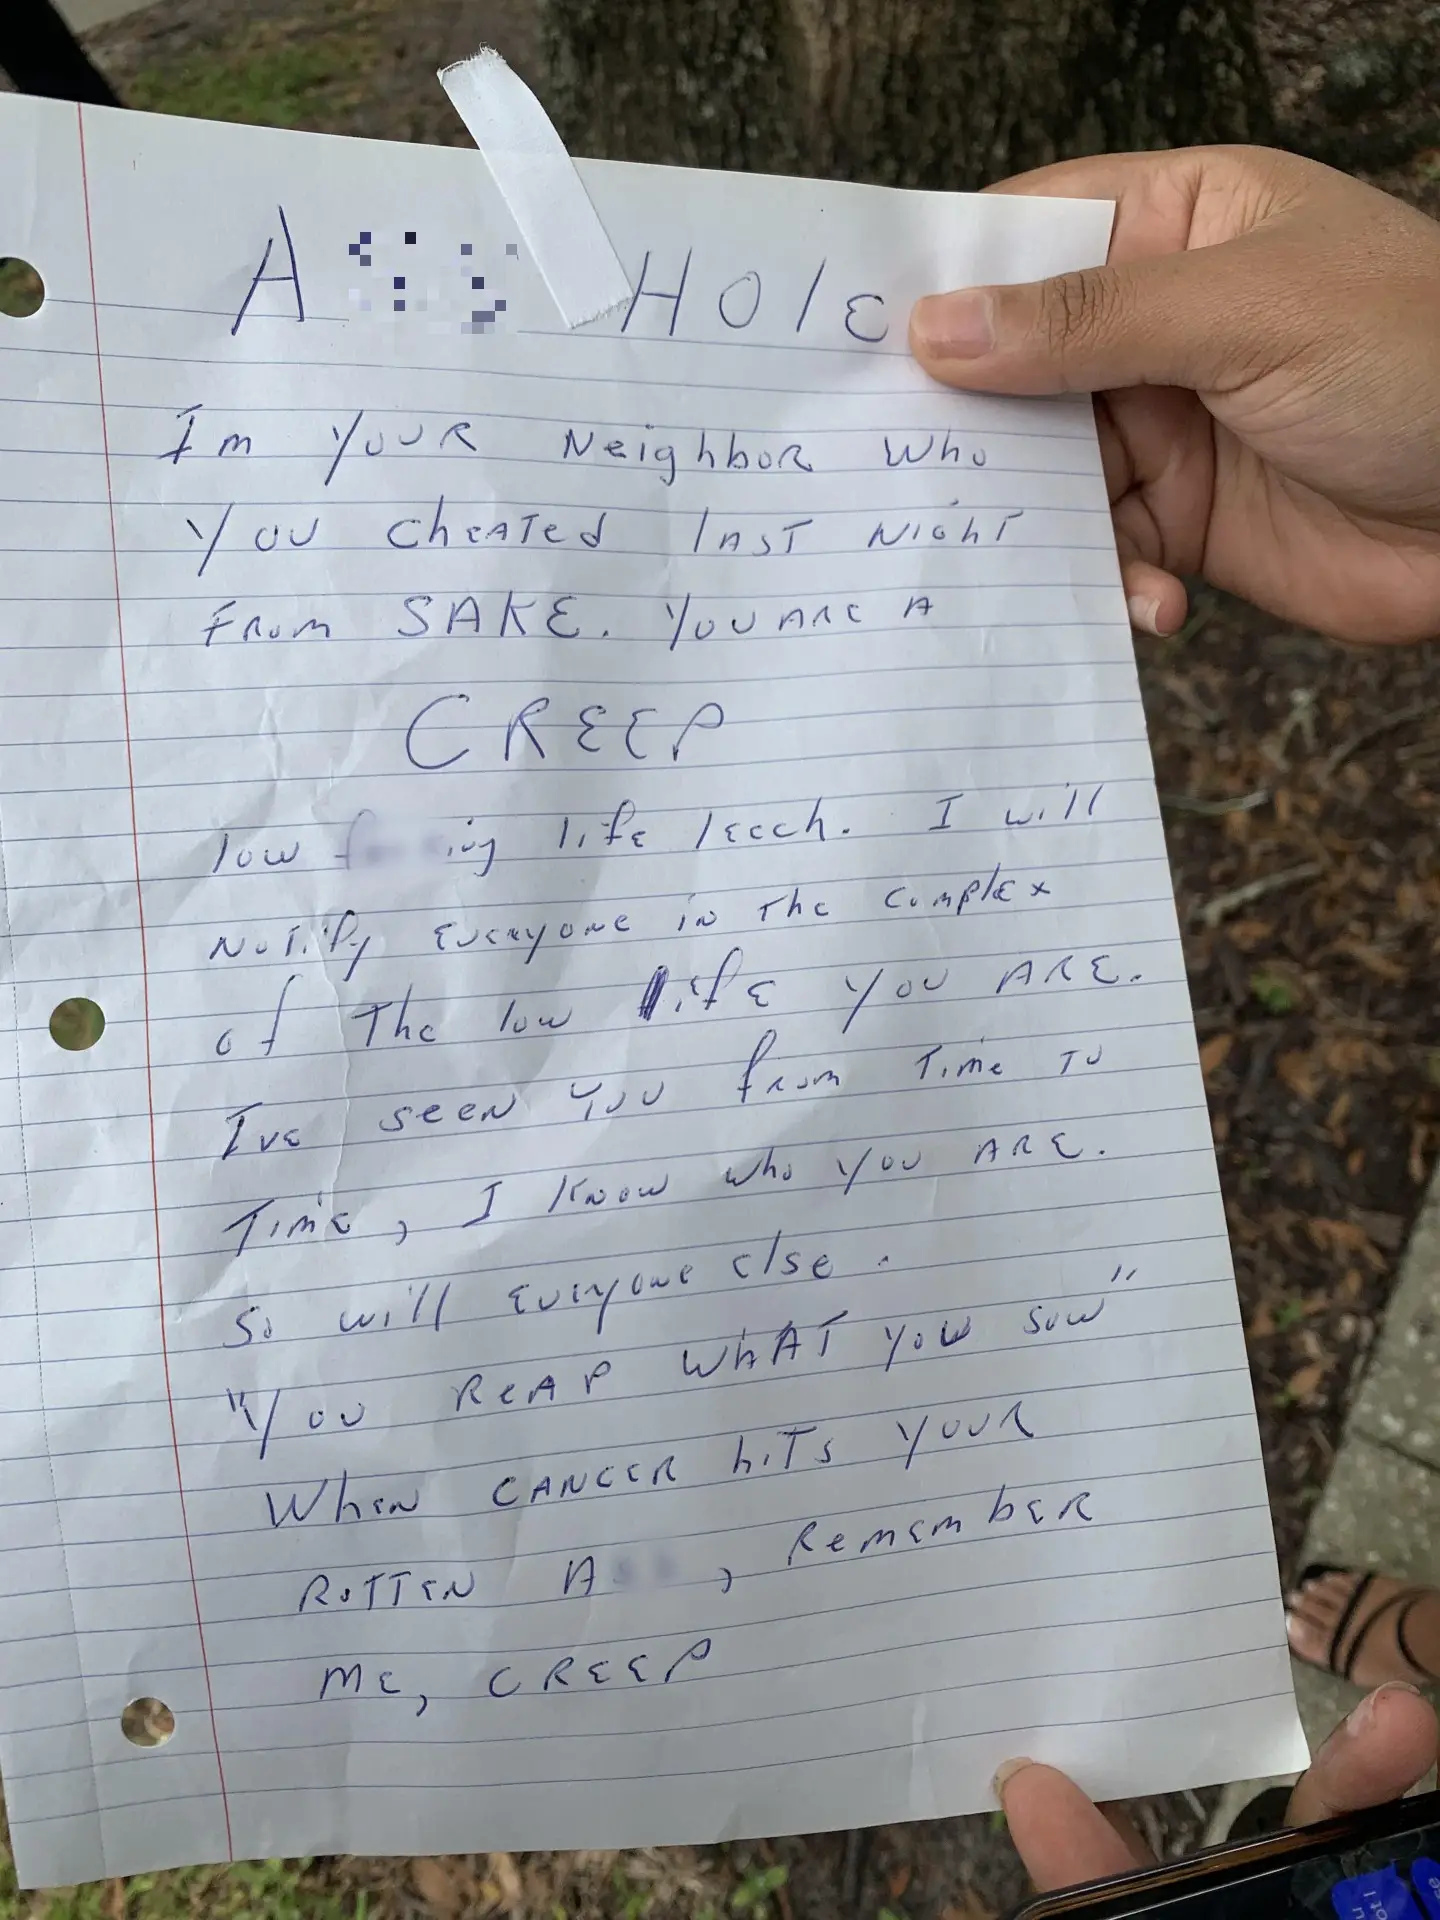 A HOLE
Im YOUR NeighboR Who
YOU CheATed lAST NighT
FRom SAKE. YOU ARE A
CREEP
low f ing life leech. I will
NoTify EVERYONE in The Complex
of The low life YOU ARE.
IVE SEEN YOU from Time To
Time, I Know who YOU ARE.
So will EVERYONE else.
"YOU REAP WhAT YOU SOW"
WhEN CANCER hiTs YOUR
ROTTEN A , REMEMbER
ME, CREEP